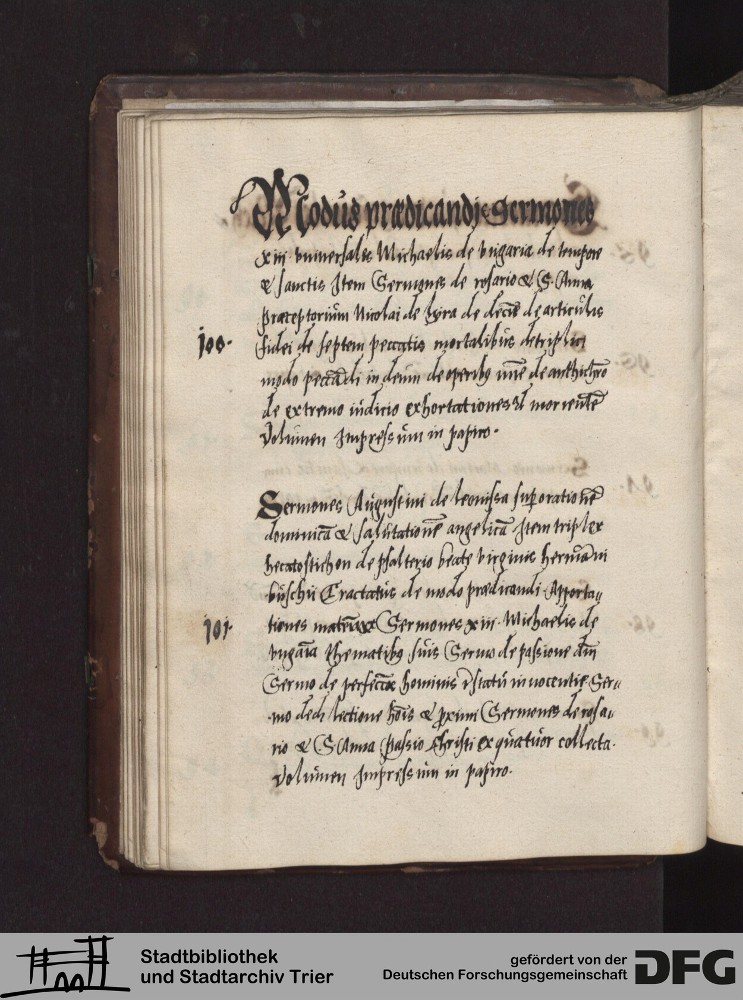 Modus prædicandj Sermones
xiii vniuersales Michaelis de vngaria de tempore
& sanctis Item Sermones de rosario & S. Anna
præceptorium Nicolai de lyra de decē de articulis
100. fidei de septem peccatis mortalibus de triplici
modo peccādi in deum de operibꝫ mīe de antichristo
de extremo iudicio exhortationes morientē
Volumen Impressum in papiro.
Sermones Augustini de leonissa sup orationē
dominicā & salutationē angelicā Item triplex
hecatostichon de psalterio beate virginis hermāni
buschii Tractatus de modo prædicandi Apporta„
101. tiones Sermones xiii. Michaelis de
vngaria thematibꝫ suis Sermo de passione dn̄i
Sermo de hominis statu innocentie Ser„
mo de dilectione & proximi Sermones de rosa„
rio & S Anna Passio Christi ex quatuor collecta.
Volumen Impressum in papiro.
Stadtbibliothek
und Stadtarchiv Trier
gefördert von der
Deutschen Forschungsgemeinschaft
DFG